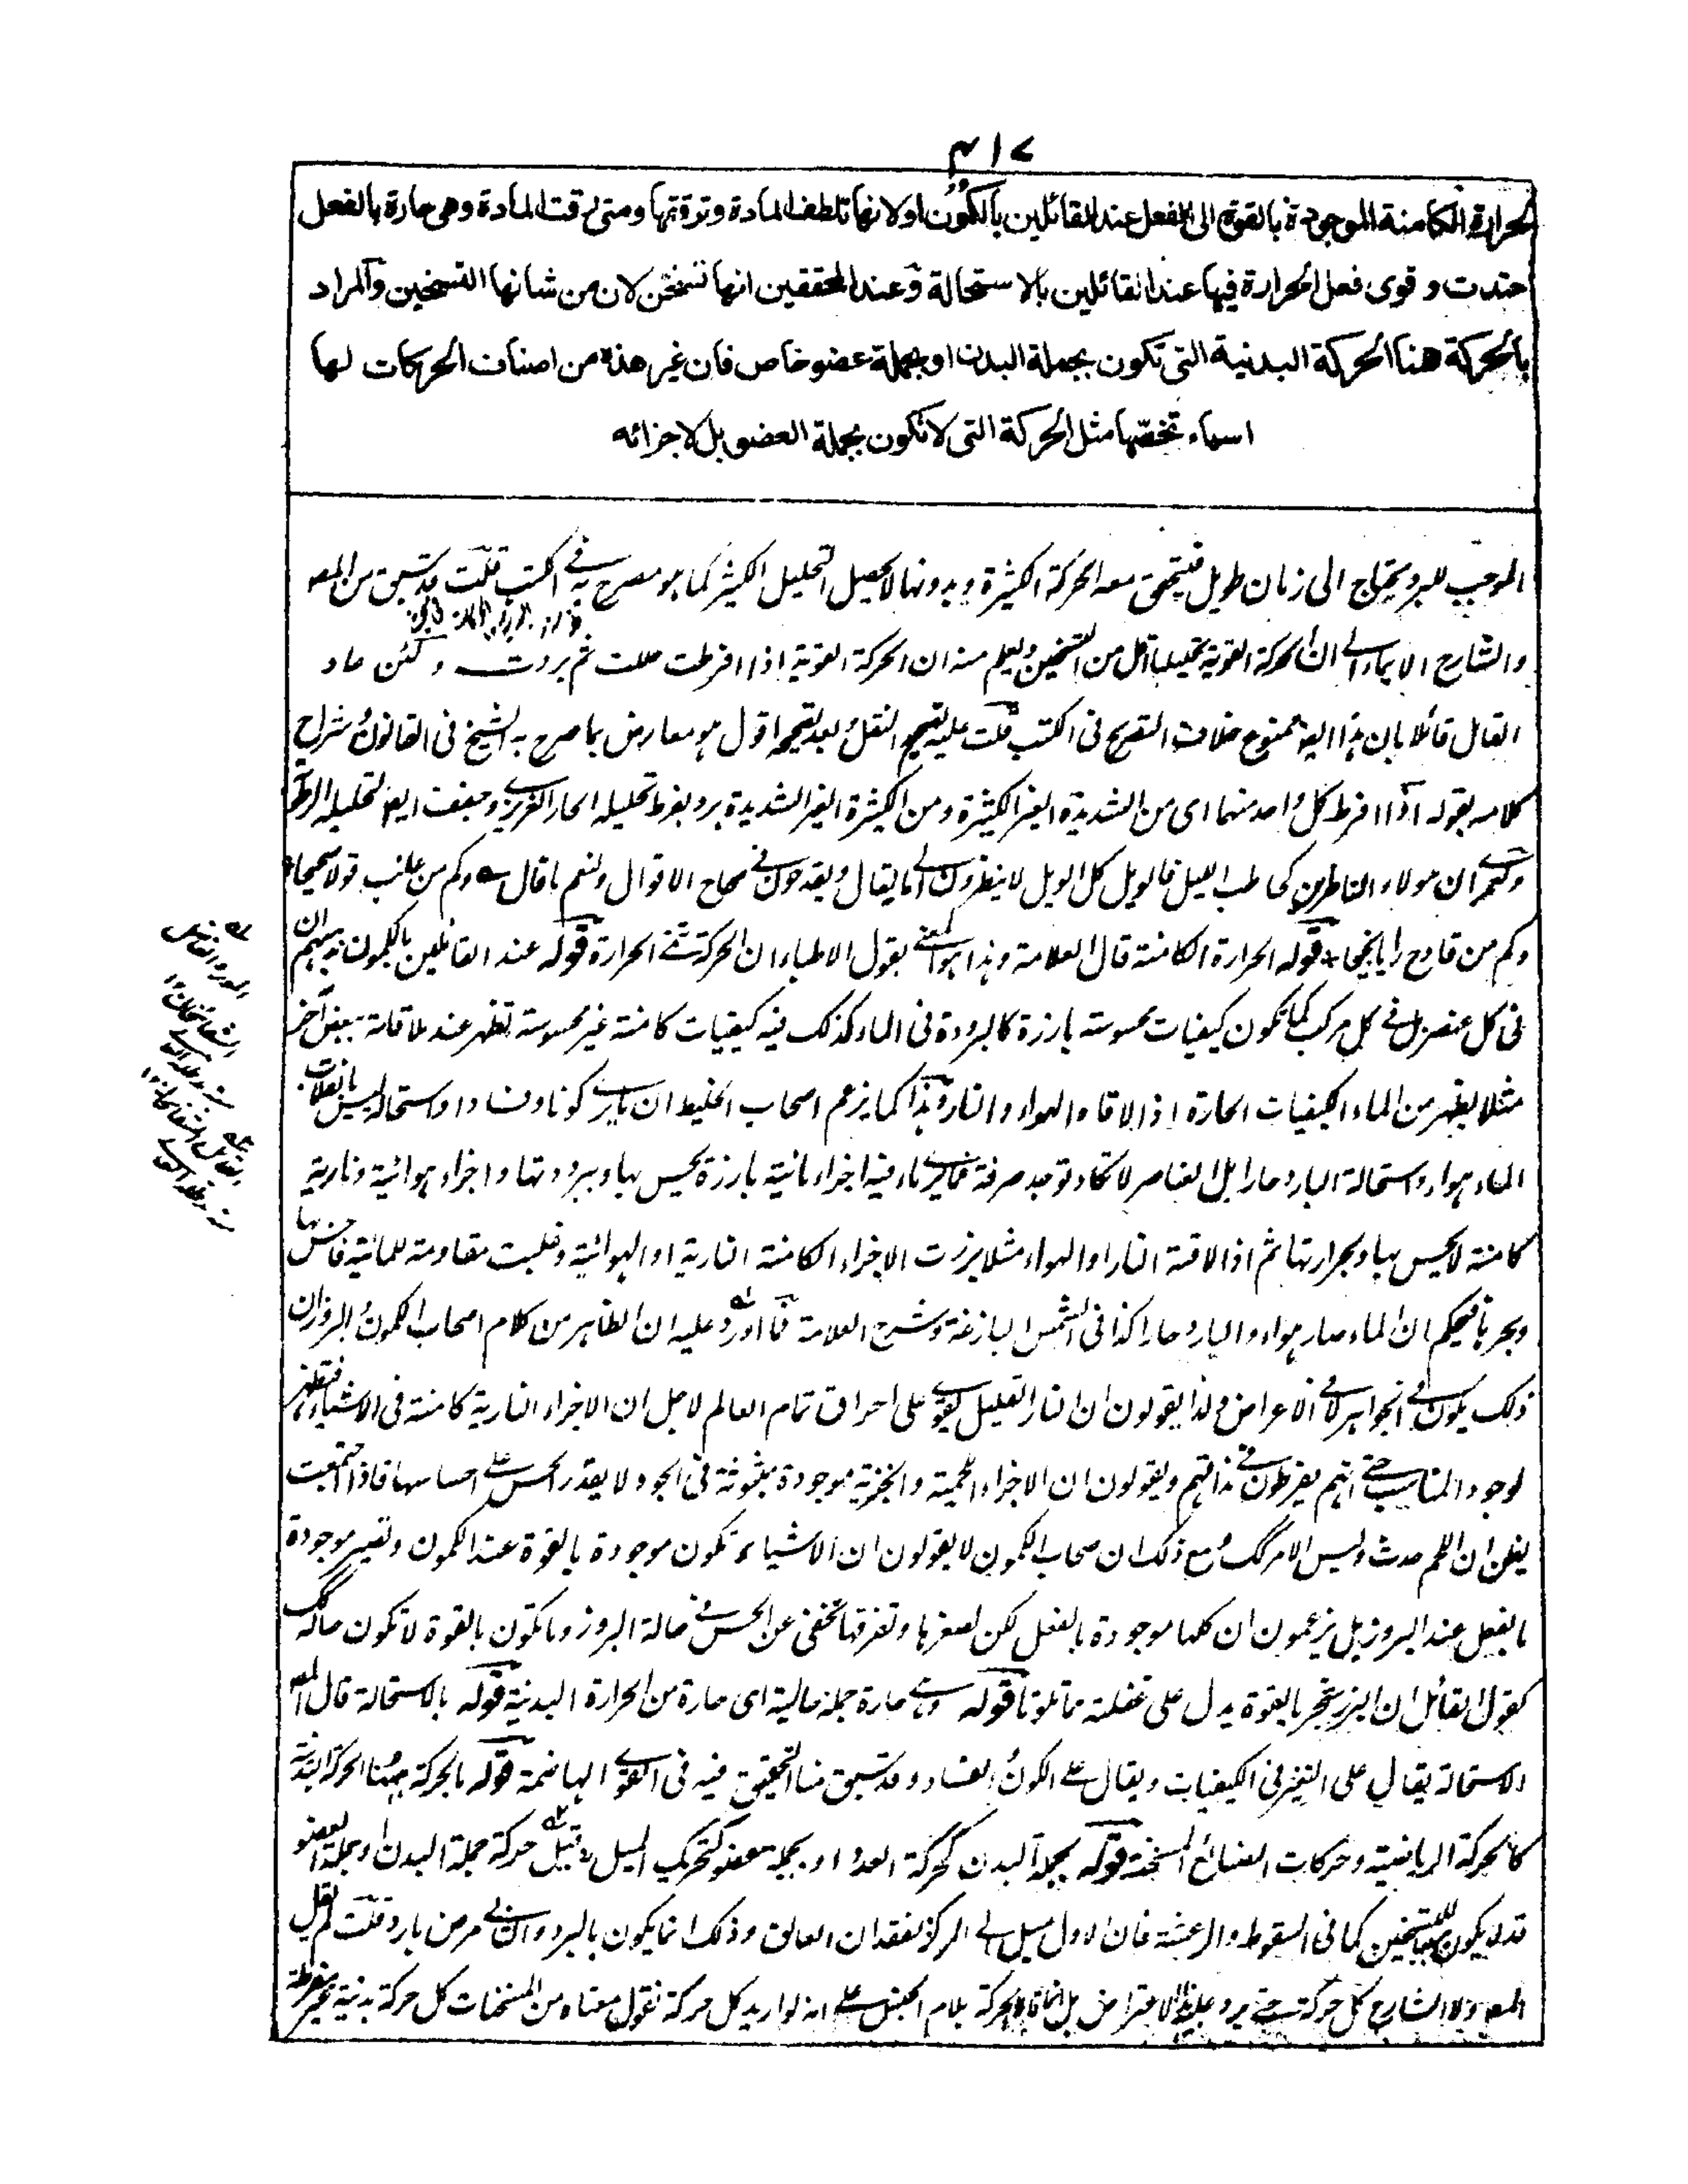 ٤١٧
الحرارة الكامنة الموجودة بالقوة الى الفعل عند القائلين بالكمون او لانها تلطف المادة وترققها ومتى رقت المادة وهى حارة بالفعل
احتدت وقوى فعل الحرارة فيها عند القائلين بالاستحالة وعند المحققين انها تسخن لان من شانها التسخين والمراد
بالحركة هنا الحركة البدنية التى تكون بجملة البدن او بجملة عضو خاص فان غير هذه من اصناف الحركات لها
اسماء تخصّها مثل الحركة التى لا تكون بجملة العضو بل لاجزائه
الموجب للبرد يحتاج الى زمان طويل فيتحقق معه الحركة الكثيرة وبدونها لا يحصل التحليل الكثير كما هو مصرح به فى الكتب قلت قد سبق من المص
والشارح الايماء الى ان الحركة القوية تحليلها اقل من التسخين وليعلم منه ان الحركة القوية اذا افرطت حللت ثم بردت ولئن عاد
القال قائلا بان هذا ايض ممنوع خلاف التصريح فى الكتب قلت عليه تصحيح النقل وبعد تصحيحه اقول هو معارض بما صرح به الشيخ فى القانون وشراح
كلامه بقوله اذا افرط كل واحد منهما اى من الشديدة الغير الكثيرة ومن الكثيرة الغير الشديدة برد لفرط تحليله الحار الغريزى وجفف ايض لتحليله الرطوبة
ولعمرى ان هولاء الناظرين كحاطب الليل فالويل كل الويل لا ينظرون الى ما يقال ويقدحون فى صحاح الاقوال ولنعم ما قال ه وكم من عائب قولا صحيحا
وكم من قادح رايا نجيحا قوله الحرارة الكامنة قال العلامة وهذا هو المعنى بقول الاطباء ان الحركة تثير الحرارة قوله عند القائلين بالكمون مذهبهم ان
فى كل عنصر بل فى كل مركب كما تكون كيفيات محسوسة بارزة كالبرودة فى الماء كذلك فيه كيفيات كامنة غير محسوسة تظهر عند ملاقاة بعض آخر
مثلا يظهر من الماء الكيفيات الحارة اذا لاقاه الهواء والنار وهذا كما يزعم اصحاب الخليط ان ما يرى كونا وفسادا واستحالة ليس بانقلاب
الماء هواء واستحالة البارد حارا بل العناصر لا تكاد توجد صرفة فما يرى ماء فيه اجزاء مائية بارزة يحس بها وببرودتها واجزاء هوائية ونارية
كامنة لا يحس بها وبحرارتها ثم اذا لاقته النار او الهواء مثلا برزت الاجزاء الكامنة النارية او الهوائية وغلبت مقاومة للمائية فاحس بها
وبحرها فيحكم ان الماء صار هواء والبارد حارا كذا فى الشمس البازغة وشرح العلامة فما اورد عليه ان الظاهر من كلام اصحاب الكمون والبروز ان
ذلك يكون فى الجواهر لا فى الاعراض ولذا يقولون ان النار القليل يقوى على احراق تمام العالم لاجل ان الاجزاء النارية كامنة فى الاشياء فتظهر
لوجود المناسب حتى انهم يفرطون فى مذاقهم ويقولون ان الاجزاء اللحمية والخبزية موجودة مبثوثة فى الجو ولا يقدر الحس على احساسها فاذا اجتمعت
يظن ان اللحم حدث وليس الامر كك ومع ذلك ان اصحاب الكمون لا يقولون ان الاشياء تكون موجودة بالقوة عند الكمون وتصير موجودة
بالفعل عند البروز بل يزعمون ان كلها موجودة بالفعل لكن لصغرها وتفرقها تخفى عن الحس فى حالة البروز وما تكون بالقوة لا تكون حاله كك
كقول القائل ان البزر شجر بالقوة يدل على غفلته مما تلونا قوله وهى حارة جملة حالية اى حارة من الحرارة البدنية قوله بالاستحالة قال المص
الاستحالة يقال على التغير فى الكيفيات ويقال على الكون والفساد وقد سبق منا التحقيق فيه فى القوى الهاضمة قوله بالحركة ههنا الحركة البدنية
كالحركة الرياضية وحركات الصنائع المسخنة قوله بجملة البدن كحركة العدو او بجملة عضو كتحريك الميل قيل حركة جملة البدن او جملة العضو
قد لا يكون للتسخين كما فى السقوط والرعشة فان الاول ميل الى المركز لفقدان العائق وذلك انما يكون بالبرد والثانى مرض بارد قلت لم يقل
المص ولا الشارح كل حركة حتى يرد عليه الاعتراض بل انما قالا الحركة بلام الجنس على انه لو اريد كل حركة نقول معناه من المسخنات كل حركة بدنية غير مفرطة